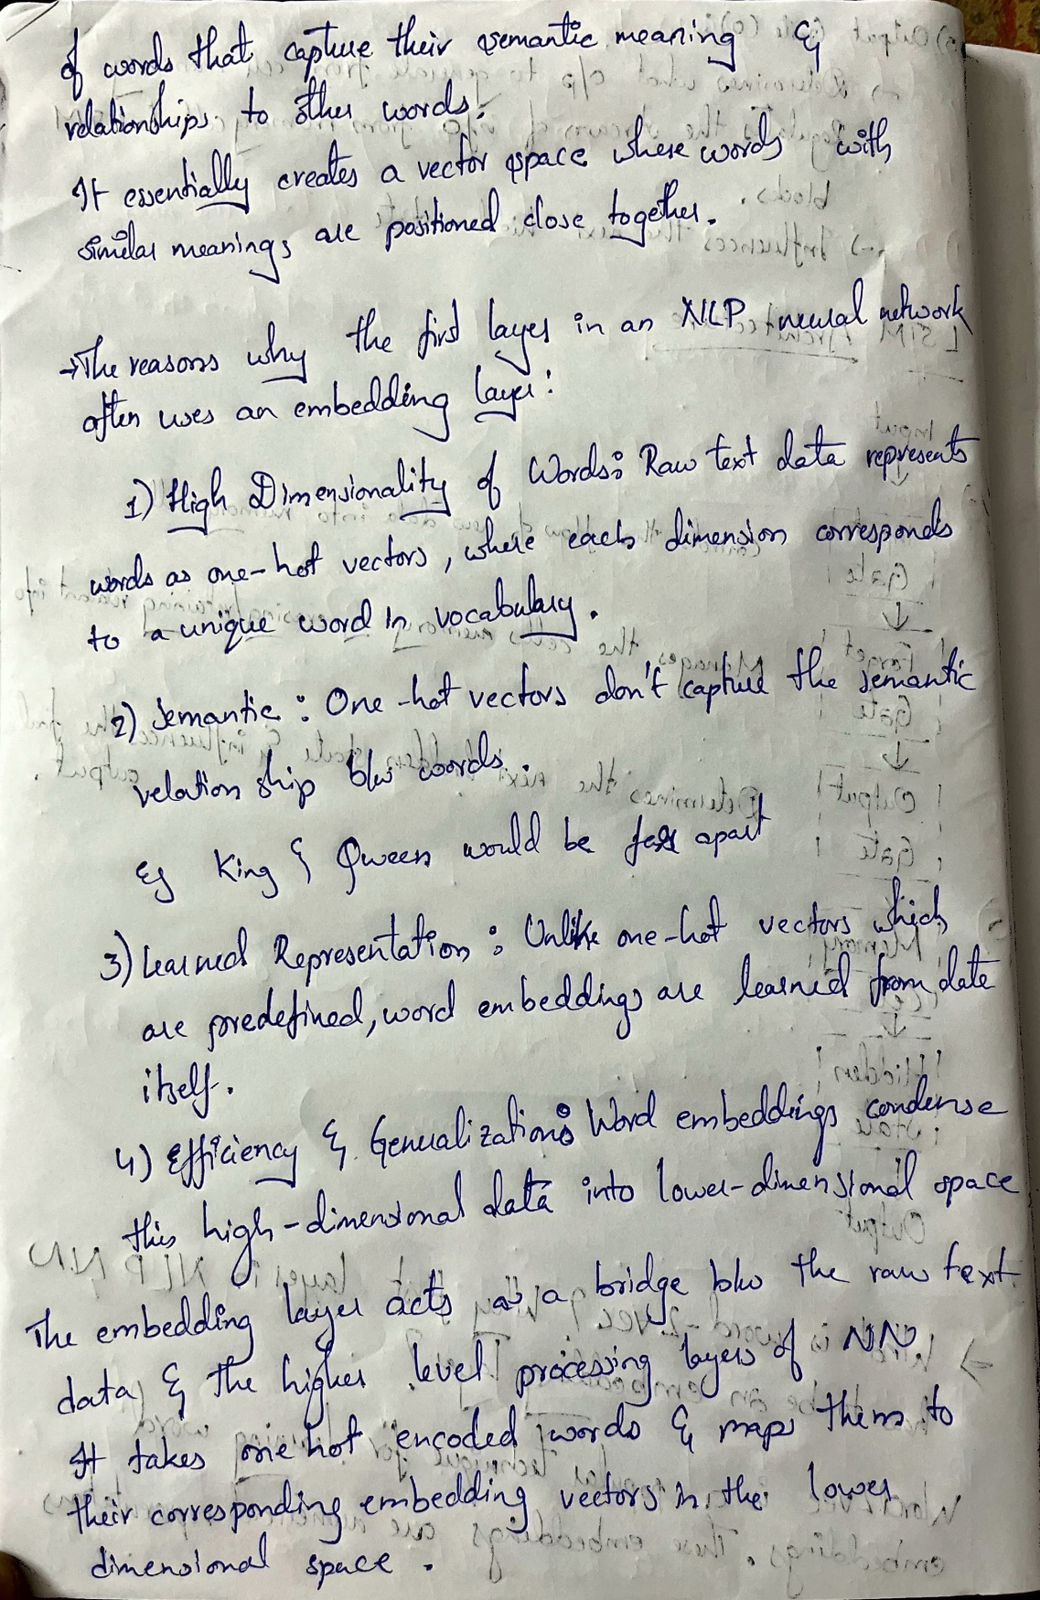 of words that capture their semantic meaning &
relationships to other words.
It essentially creates a vector space where words with
similar meanings are positioned close together.
→The reasons why the first layer in an NLP neural network
often uses an embedding layer:
1) High Dimensionality of Words: Raw text data represents
words as one-hot vectors, where each dimension corresponds
to a unique word in vocabulary.
2) Semantic: One-hot vectors don't capture the semantic
relation ship b/w words.
Eg King & Queen would be far apart
3) Learned Representation: Unlike one-hot vectors which
are predefined, word embeddings are learned from data
itself.
4) Efficiency & Generalization: Word embeddings condense
this high-dimensional data into lower-dimensional space
The embedding layer acts as a bridge b/w the raw text
data & the higher level processing layers of NN.
It takes one hot encoded words & maps them to
their corresponding embedding vectors in the lower
dimensional space.